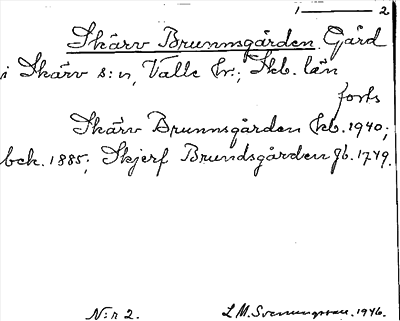 1 ——— 2
Skärv Brunnsgården. Gård
i Skärv s:n, Valle hr.; Skb. län
forts
Skärv Brunnsgården kb. 1940;
bek. 1885; Skjerf Brundsgården Jb. 1749.
N:r 2. L. M. Svenungsson. 1946.